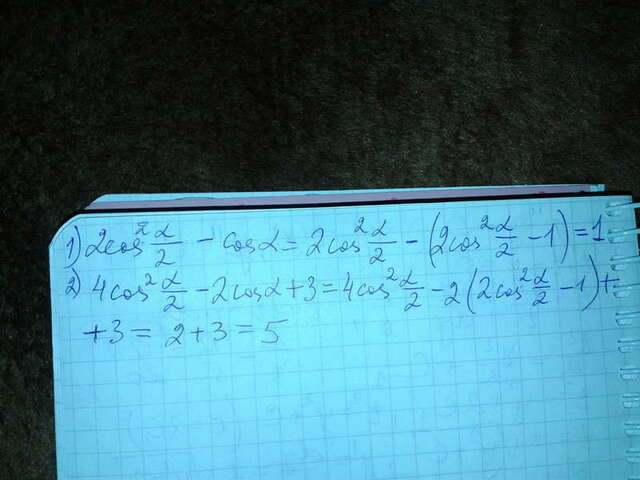 1) 2cos² α/2 - cosα = 2cos² α/2 - (2cos² α/2 - 1) = 1
2) 4cos² α/2 - 2cosα + 3 = 4cos² α/2 - 2(2cos² α/2 - 1) +
+ 3 = 2 + 3 = 5